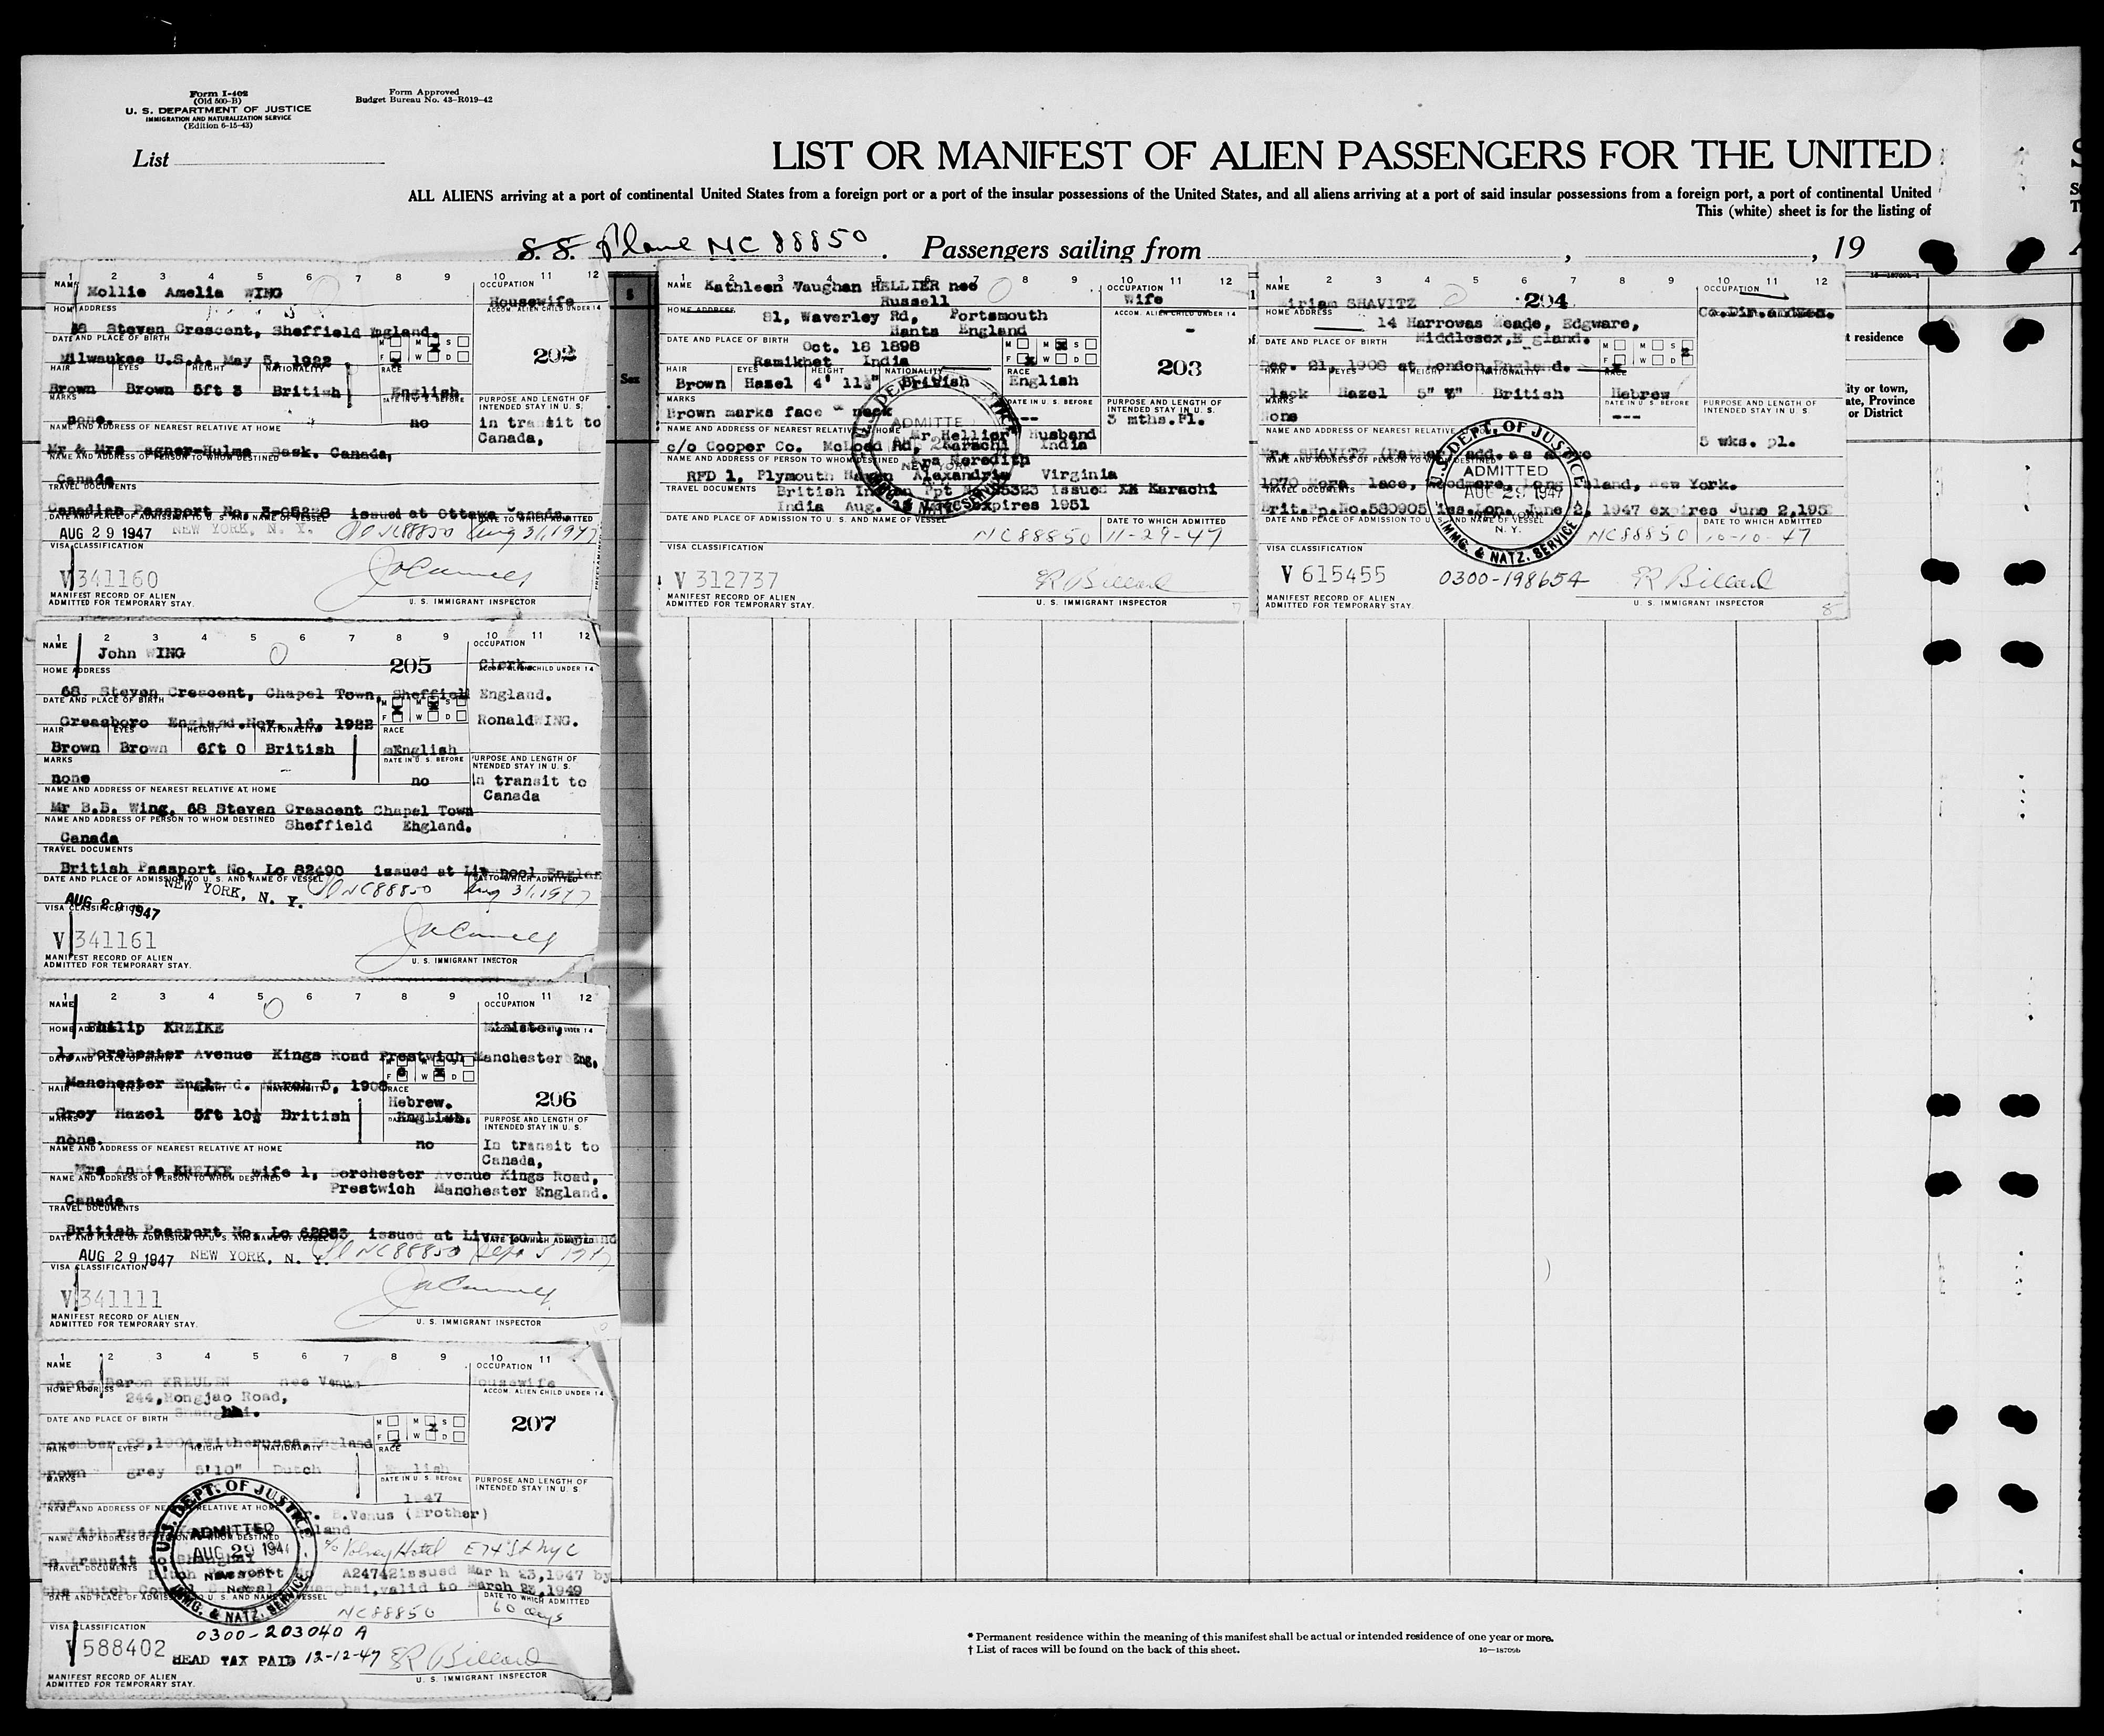 Form I-402
(Old 500-B)
U. S. DEPARTMENT OF JUSTICE
IMMIGRATION AND NATURALIZATION SERVICE
(Edition 6-15-43)
Form Approved
Budget Bureau No. 43-R019-42
List
LIST OR MANIFEST OF ALIEN PASSENGERS FOR THE UNITED
ALL ALIENS arriving at a port of continental United States from a foreign port or a port of the insular possessions of the United States, and all aliens arriving at a port of said insular possessions from a foreign port, a port of continental United
This (white) sheet is for the listing of
S. S. Plane NC 88850. Passengers sailing from , , 19
1 2 3 4 5 6 7 8 9 10 11 12
NAME
Mollie Amelia WING
OCCUPATION
Housewife
HOME ADDRESS
ACCOM. ALIEN CHILD UNDER 14
68 Steven Crescent, Sheffield England.
DATE AND PLACE OF BIRTH
Milwaukee U.S.A. May 5, 1922
M M S
F W D
202
HAIR EYES HEIGHT NATIONALITY RACE
Brown Brown 5ft 3 British English
MARKS
DATE IN U. S. BEFORE
PURPOSE AND LENGTH OF
INTENDED STAY IN U. S.
none.
no
in transit to
Canada,
NAME AND ADDRESS OF NEAREST RELATIVE AT HOME
Mr & Mrs Sask. Canada,
NAME AND ADDRESS OF PERSON TO WHOM DESTINED
Canada
TRAVEL DOCUMENTS
Canadian Passport No. issued at Ottawa Canada.
DATE AND PLACE OF ADMISSION TO U. S. AND NAME OF VESSEL
DATE TO WHICH ADMITTED
AUG 29 1947 NEW YORK, N. Y. NC88850 Aug 31, 1947
VISA CLASSIFICATION
V 341160
MANIFEST RECORD OF ALIEN
ADMITTED FOR TEMPORARY STAY.
U. S. IMMIGRANT INSPECTOR
S
Sex
1 2 3 4 5 6 7 8 9 10 11 12
NAME Kathleen Vaughan HELLIER nee
Russell
OCCUPATION
Wife
HOME ADDRESS
ACCOM. ALIEN CHILD UNDER 14
81, Waverley Rd, Portsmouth
Hants England
-
DATE AND PLACE OF BIRTH
Oct. 18 1898
Ramikhet India
M M S
F W D
203
HAIR EYES HEIGHT NATIONALITY RACE
Brown Hazel 4' 11½" British English
MARKS
DATE IN U. S. BEFORE
PURPOSE AND LENGTH OF
INTENDED STAY IN U. S.
Brown marks face & neck
--
3 mths.Pl.
NAME AND ADDRESS OF NEAREST RELATIVE AT HOME
Mr Hellier Husband
c/o Cooper Co. McLeod Rd, Karachi India
NAME AND ADDRESS OF PERSON TO WHOM DESTINED
Mrs Meredith
RFD 1, Plymouth Haven Alexandria Virginia
TRAVEL DOCUMENTS
British Indian Ppt issued XX Karachi
India Aug. expires 1951
DATE AND PLACE OF ADMISSION TO U. S. AND NAME OF VESSEL
DATE TO WHICH ADMITTED
NC88850 11-29-47
VISA CLASSIFICATION
V 312737
ER Billard
MANIFEST RECORD OF ALIEN
ADMITTED FOR TEMPORARY STAY.
U. S. IMMIGRANT INSPECTOR
1 2 3 4 5 6 7 8 9 10 11 12
NAME
Miriam SHAVITZ
204
OCCUPATION
HOME ADDRESS
14 Harrowes Meade, Edgware,
Middlesex, England.
DATE AND PLACE OF BIRTH
M M S
F W D
Dec. 21, 1908 at London, England.
HAIR EYES HEIGHT NATIONALITY RACE
Black Hazel British Hebrew
MARKS
DATE IN U. S. BEFORE
PURPOSE AND LENGTH OF
INTENDED STAY IN U. S.
None
---
NAME AND ADDRESS OF NEAREST RELATIVE
5 wks. pl.
Mr. SHAVITZ (Father) add. as above
NAME AND ADDRESS OF PERSON TO WHOM DESTINED
1070 Place, Woodmere, Long Island, New York.
TRAVEL DOCUMENTS
Brit.Pp.No.580905 iss.Lon. June 2, 1947 expires June 2,195
U. S. DEPT. OF JUSTICE
ADMITTED
AUG 29 1947
N. Y.
IMMG. & NATZ. SERVICE
DATE AND PLACE OF ADMISSION TO U. S. AND NAME OF VESSEL
DATE TO WHICH ADMITTED
NC88850 10-10-47
VISA CLASSIFICATION
V 615455 0300-198654 ER Billard
MANIFEST RECORD OF ALIEN
ADMITTED FOR TEMPORARY STAY.
U. S. IMMIGRANT INSPECTOR
8
t residence
ity or town,
ate, Province
or District
1 2 3 4 5 6 7 8 9 10 11 12
NAME
John WING
OCCUPATION
Clerk.
HOME ADDRESS
205
ACCOM. ALIEN CHILD UNDER 14
68 Steven Crescent, Chapel Town, Sheffield England.
DATE AND PLACE OF BIRTH
M M S
F W D
Ronald WING.
Greasboro England. Nov. 16, 1922
HAIR EYES HEIGHT NATIONALITY RACE
Brown Brown 6ft 0 British English
MARKS
DATE IN U. S. BEFORE
PURPOSE AND LENGTH OF
INTENDED STAY IN U. S.
none
no
In transit to
Canada
NAME AND ADDRESS OF NEAREST RELATIVE AT HOME
Mr B.B. Wing, 68 Steven Crescent Chapel Town
NAME AND ADDRESS OF PERSON TO WHOM DESTINED
Sheffield England.
Canada
TRAVEL DOCUMENTS
British Passport No. Lo 82490 issued at Liverpool England
DATE AND PLACE OF ADMISSION TO U. S. AND NAME OF VESSEL
DATE TO WHICH ADMITTED
AUG 29 1947 NEW YORK, N. Y. NC88850 Aug 31, 1947
VISA CLASSIFICATION
V 341161
MANIFEST RECORD OF ALIEN
ADMITTED FOR TEMPORARY STAY.
U. S. IMMIGRANT INSPECTOR
1 2 3 4 5 6 7 8 9 10 11 12
NAME
OCCUPATION
HOME ADDRESS
Philip KREIKE
Minister,
ACCOM. ALIEN CHILD UNDER 14
1, Dorchester Avenue Kings Road Prestwich Manchester Eng.
DATE AND PLACE OF BIRTH
M M S
F W D
Manchester England. March 5, 1908
HAIR EYES HEIGHT NATIONALITY RACE
Hebrew.
206
Grey Hazel 5ft 10½ British English.
MARKS
DATE IN U. S. BEFORE
PURPOSE AND LENGTH OF
INTENDED STAY IN U. S.
none.
no
In transit to
Canada,
NAME AND ADDRESS OF NEAREST RELATIVE AT HOME
Mrs Annie KREIKE wife 1, Dorchester Avenue Kings Road,
NAME AND ADDRESS OF PERSON TO WHOM DESTINED
Prestwich Manchester England.
Canada
TRAVEL DOCUMENTS
British Passport No. Lo issued at Liverpool England
DATE AND PLACE OF ADMISSION TO U. S. AND NAME OF VESSEL
DATE TO WHICH ADMITTED
AUG 29 1947 NEW YORK, N. Y. NC88850 Sept
VISA CLASSIFICATION
V 341111
MANIFEST RECORD OF ALIEN
ADMITTED FOR TEMPORARY STAY.
U. S. IMMIGRANT INSPECTOR
10
1 2 3 4 5 6 7 8 9 10 11
NAME
OCCUPATION
Baron KREULEN nee Venus
ousewife
HOME ADDRESS
ACCOM. ALIEN CHILD UNDER 14
244, Hongjao Road,
Shanghai.
DATE AND PLACE OF BIRTH
M M S
F W D
207
ovember 22,1904, England
HAIR EYES HEIGHT NATIONALITY RACE
rown grey 5'10" Dutch English
MARKS
DATE IN U. S. BEFORE
PURPOSE AND LENGTH OF
INTENDED STAY IN U. S
NAME AND ADDRESS OF NEAREST RELATIVE AT HOME
.Venus (Brother)
NAME AND ADDRESS OF PERSON TO WHOM DESTINED
in transit to Shanghai c/o Volney Hotel E 74 St NYC
TRAVEL DOCUMENTS
Dutch Passport A24742 issued March 23,1947 by
the Dutch Consul General Shanghai, valid to March 22,1949
U. S. DEPT. OF JUSTICE
ADMITTED
AUG 29 194
NEW YORK
IMMG. & NATZ. SERVICE
DATE AND PLACE OF ADMISSION TO U. S. AND NAME OF VESSEL
DATE TO WHICH ADMITTED
NC88850 60 days
VISA CLASSIFICATION
0300-203040 A
V 588402 HEAD TAX PAID 12-12-47 ER Billard
MANIFEST RECORD OF ALIEN
ADMITTED FOR TEMPORARY STAY.
U. S. IMMIGRANT INSPECTOR
* Permanent residence within the meaning of this manifest shall be actual or intended residence of one year or more.
† List of races will be found on the back of this sheet.
16—18709b